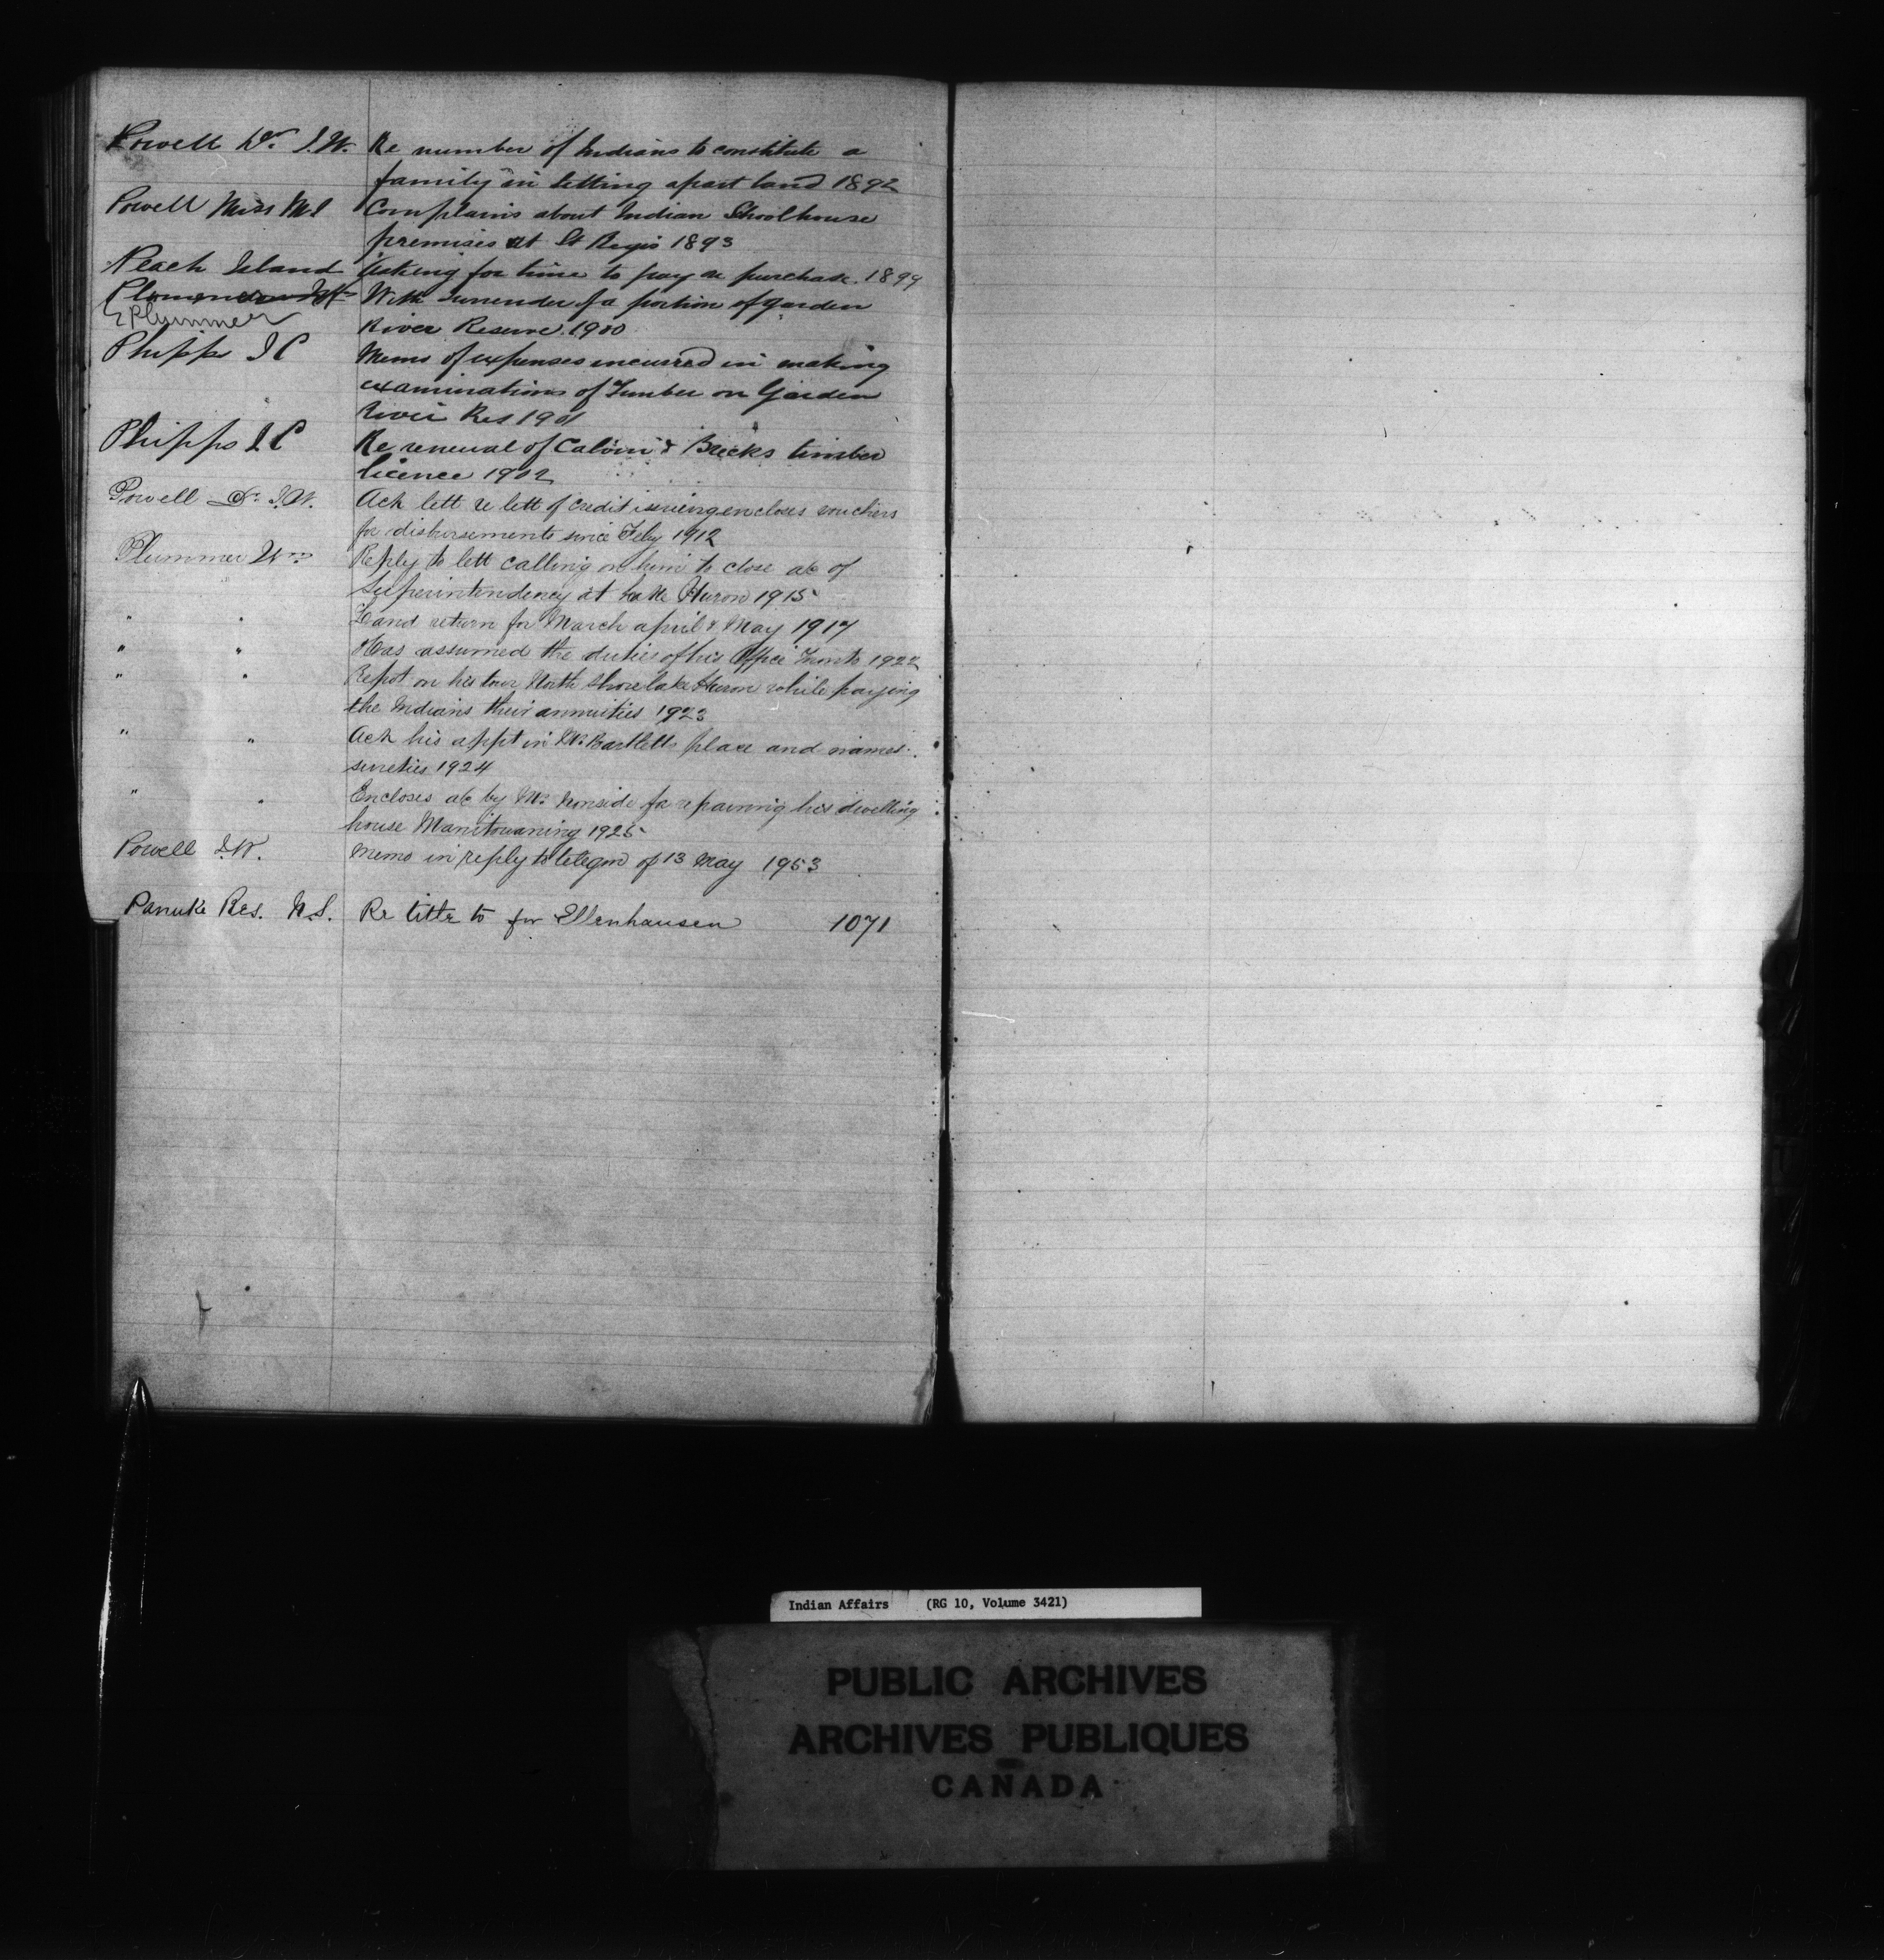 Powell Dr. I.W. Re number of Indians to constitute a
family in setting apart land 1892
Powell Miss M I Complains about Indian Schoolhouse
premises at St Regis 1893
Peach Island Asking for time to pay re purchase. 1899
Plommer W With surrender of a portion of Garden
E Plummer River Reserve. 1900
Phipps J C Memo of expenses incurred in making
examinations of Timber on Garden
River Res 1901
Phipps J C Re renewal of Calvin & Brecks timber
licence 1902
Powell Dr. I.W. Ack lett re lett of credit issuing encloses vouchers
for disbursements since Feby 1912
Plummer Wm Reply to lett calling on him to close a/c of
Superintendency at Lake Huron 1915
" " Land return for March april & May 1917
" " Has assumed the duties of his Office Toronto 1922
" " Repot on his tour North Shore lake Huron while paying
the Indians their annuities 1923
" " Ack his appt in Mr Bartletts place and names
sureties 1924
" " Encloses a/c by Mr Ironside for repairing his dwelling
house Manitowaning 1925
Powell I.W. Memo in reply to telegm of 13 May 1953
Panuke Res. N.S. Re title to for Ellenhausen 1071
Indian Affairs (RG 10, Volume 3421)
PUBLIC ARCHIVES
ARCHIVES PUBLIQUES
CANADA